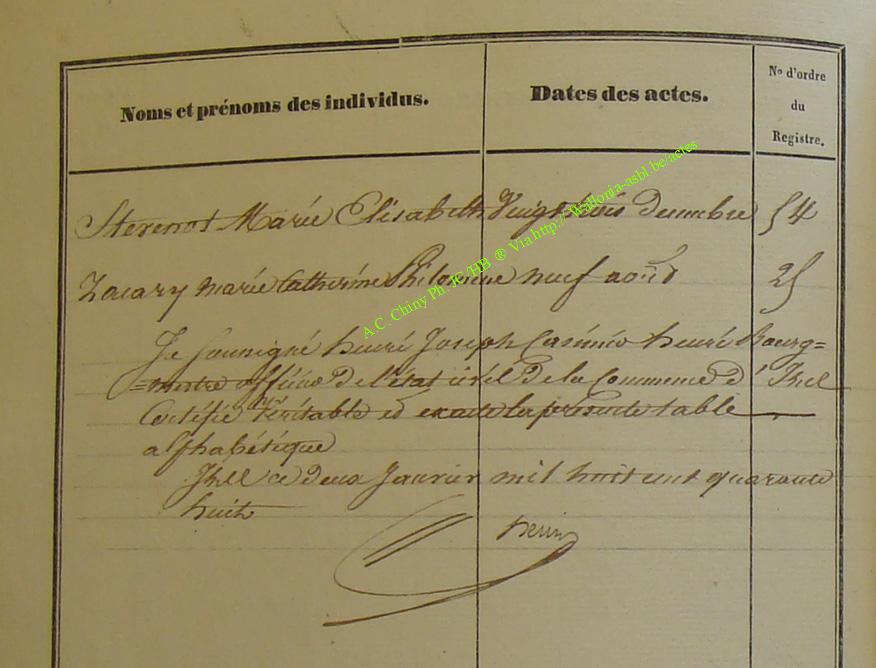 Noms et prénoms des individus. Dates des actes. No d'ordre
du
Registre.
Sterenot Marie Elisabeth Vingt trois decembre 54
Zacary marie Catherine Philomène neuf août 25
Je soussigné henri Joseph Casimir henri Bourg=
=mestre officier de l'état civil de la Commune d'Izel
Certifie véritable et exacte la présente table
alphabétique
Izel ce deux Janvier mil huit cent quarante
huit
henri
A.C. Chiny Ph JC/HB ® Via http://Wallonia-asbl be/actes